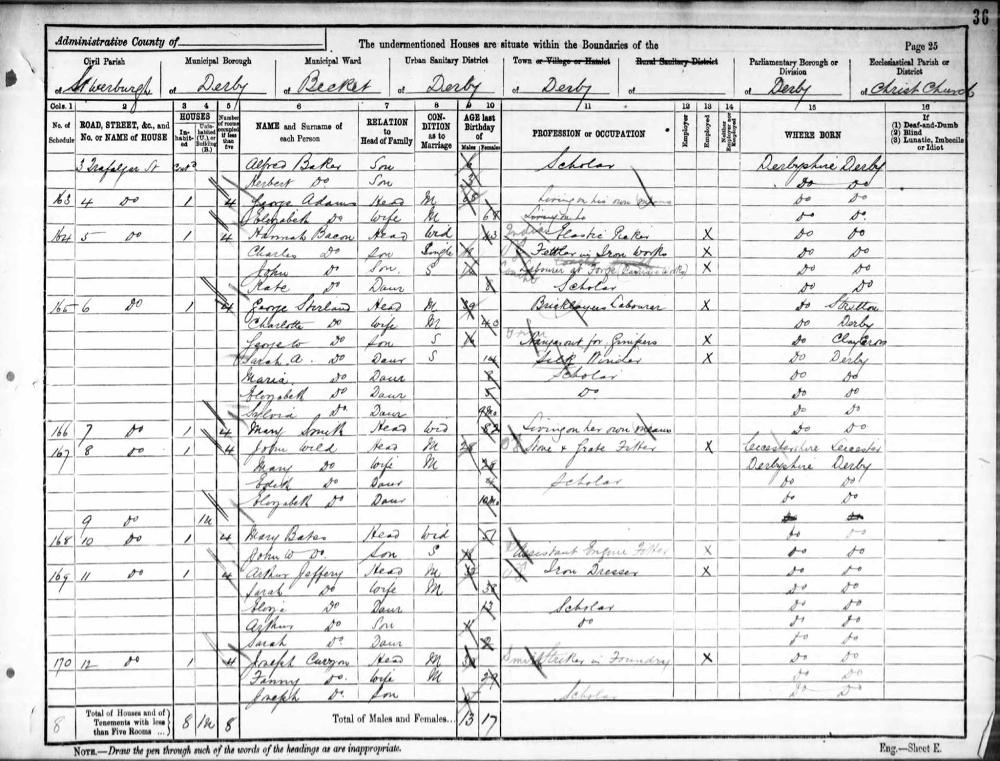 36
Administrative County of
The undermentioned Houses are situate within the Boundaries of the
Page 25
Civil Parish Municipal Borough Municipal Ward Urban Sanitary District Town or Village or Hamlet Rural Sanitary District Parliamentary Borough or Division Ecclesiastical Parish or District
of St Werburgh of Derby of Becket of Derby of Derby of of Derby of Christ Church
Cols. 1 2 3 4 5 6 7 8 9 10 11 12 13 14 15 16
No. of Schedule ROAD, STREET, &c., and No. or NAME of HOUSE HOUSES Inhabited Uninhabited (U.) or Building (B.) Number of rooms occupied if less than five NAME and Surname of each Person RELATION to Head of Family CONDITION as to Marriage AGE last Birthday of Males Females PROFESSION or OCCUPATION Employer Employed Neither Employer nor Employed WHERE BORN If (1) Deaf-and-Dumb (2) Blind (3) Lunatic, Imbecile or Idiot
3 Trafalgar St Contd Alfred Baker Son Scholar Derbyshire Derby
Herbert Do Son 3 Do Do
163 4 Do 1 4 George Adams Head M Living on his own means Do Do
Elizabeth Do Wife M 68 Living Do Do Do
164 5 Do 1 4 Hannah Bacon Head Wid 43 Elastic X Do Do
Charles Do Son Single Fettler in Iron Works X Do Do
John Do Son S Labourer at Forge X Do Do
Kate Do Daur 8 Scholar Do Do
165 6 Do 1 4 George Head M 39 Bricklayers Labourer X Do Stretton
Charlotte Do Wife M 40 Do Derby
George W Do Son S 16 X Do Clay Cross
Sarah A. Do Daur S 14 Silk Winder X Do Derby
Maria Do Daur Scholar Do Do
Elizabeth Do Daur 5 Do Do Do
Sylvia Do Daur Do Do
166 7 Do 1 4 Mary Smith Head Wid 82 Living on her own means Do Do
167 8 Do 1 4 John Wild Head M 28 Stove & Grate Fitter X Leicestershire Leicester
Mary Do Wife M 28 Derbyshire Derby
Edith Do Daur 4 Scholar Do Do
Elizabeth Do Daur Do Do
9 Do 1u
168 10 Do 1 4 Mary Bates Head Wid 51 Do Do
John W Do Son S Assistant Engine Fitter X Do Do
169 11 Do 1 4 Arthur Jeffery Head M Iron Dresser X Do Do
Sarah Do Wife M 38 Do Do
Eliza Do Daur 12 Scholar Do Do
Arthur Do Son 11 Do Do Do
Sarah Do Daur 2 Do Do
170 12 Do 1 4 Joseph Curzon Head M 30 Striker in Foundry X Do Do
Fanny Do Wife M 29 Do Do
Joseph Do Son Scholar Do Do
8 Total of Houses and of Tenements with less than Five Rooms ... 8 1u 8 Total of Males and Females... 13 17
NOTE.—Draw the pen through such of the words of the headings as are inappropriate.
Eng.—Sheet E.